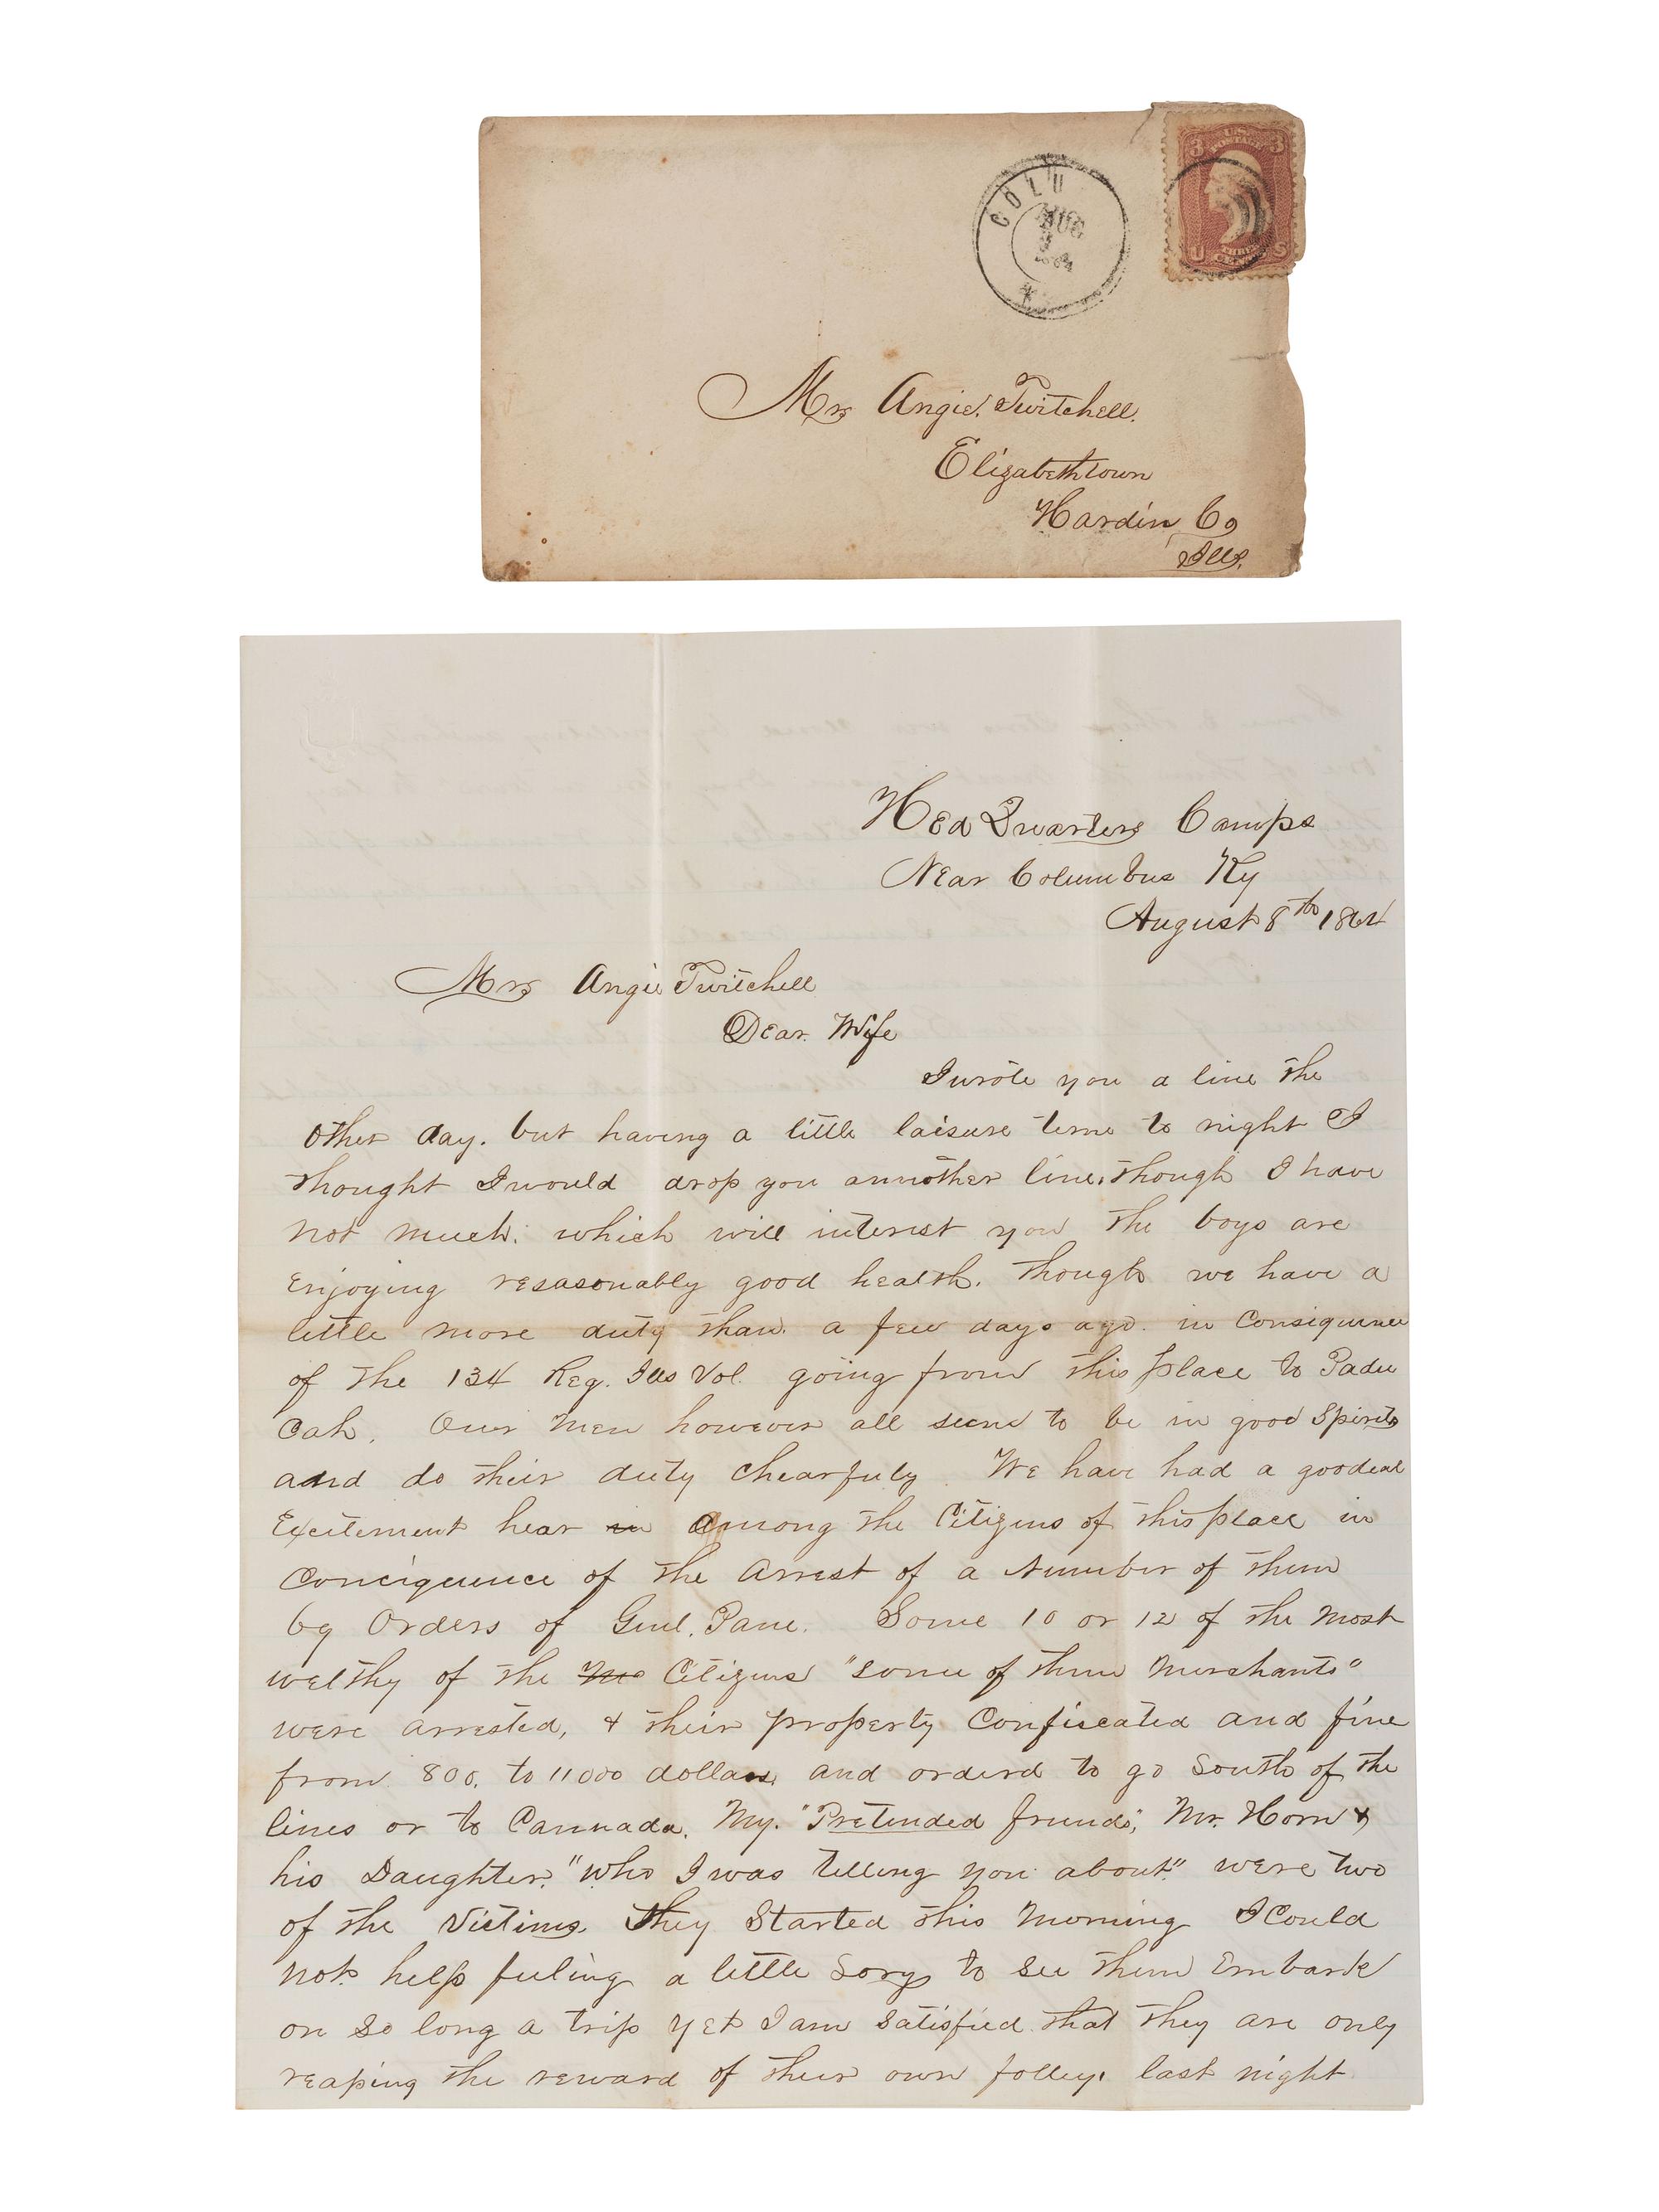 COLU
AUG
3 U.S. 3
POSTAGE
U THREE S
CENTS
Mrs Angie. Twitchell.
Elizabethtown
Hardin Co
Ills.
Hed Quarters Camps
Near Columbus Ky
August 8th 1864
Mrs Angie Twitchell
Dear. Wife
I wrote you a line the
other day. but having a little laisure time to night I
thought I would drop you annother line. though I have
not much. which will interest you the boys are
Enjoying resasonably good health. though we have a
little more duty than. a few days ago. in Consiquence
of the 134 Reg. Ills Vol. going from this place to Padu
cah. Our men however all seem to be in good Spirits
and do their duty chearfuly We have had a goodeal
Excitement hear in among the Citizens of this place in
Conciquence of the Arrest of a Number of them
by Orders of Genl. Pane. Some 10 or 12 of the most
welthy of the Me Citizens "some of them Merchants"
were arrested, & their property Confiscated and fine
from 800. to 11000 dollars, and orderd to go South of the
lines or to Cannada. My. "Pretended friends", Mr. Horn &
his Daughter. "Who I was telling you about" were two
of the Victims. They Started this Morning I Could
not help feeling a little Sory to see them Embark
on so long a trip yet I am satisfied that they are only
reaping the reward of their own folley. last night